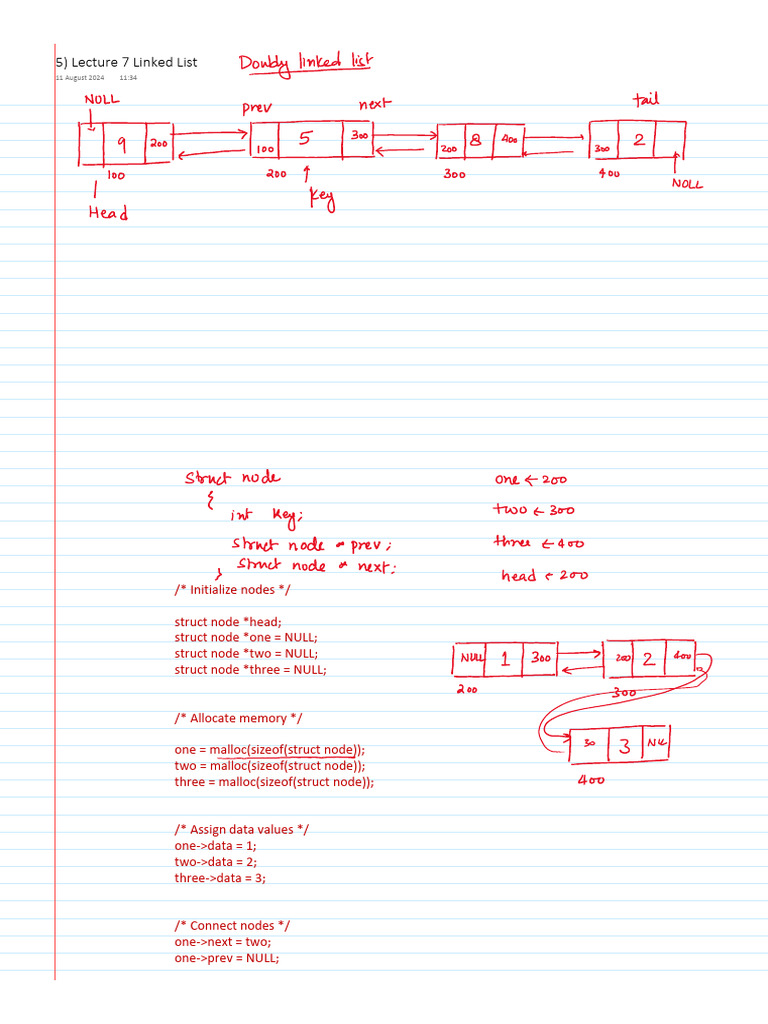 5) Lecture 7 Linked List
Doubly linked list
11 August 2024 11:34
NULL
prev next tail
9 200
100 5 300
200 8 400
300 2
100 200 300 400
NULL
Head key
struct node
{
int key;
struct node * prev;
struct node * next;
}
one ← 200
two ← 300
three ← 400
head ← 200
/* Initialize nodes */
struct node *head;
struct node *one = NULL;
struct node *two = NULL;
struct node *three = NULL;
NULL 1 300
200 2 400
200 300
30 3 NULL
400
/* Allocate memory */
one = malloc(sizeof(struct node));
two = malloc(sizeof(struct node));
three = malloc(sizeof(struct node));
/* Assign data values */
one->data = 1;
two->data = 2;
three->data = 3;
/* Connect nodes */
one->next = two;
one->prev = NULL;